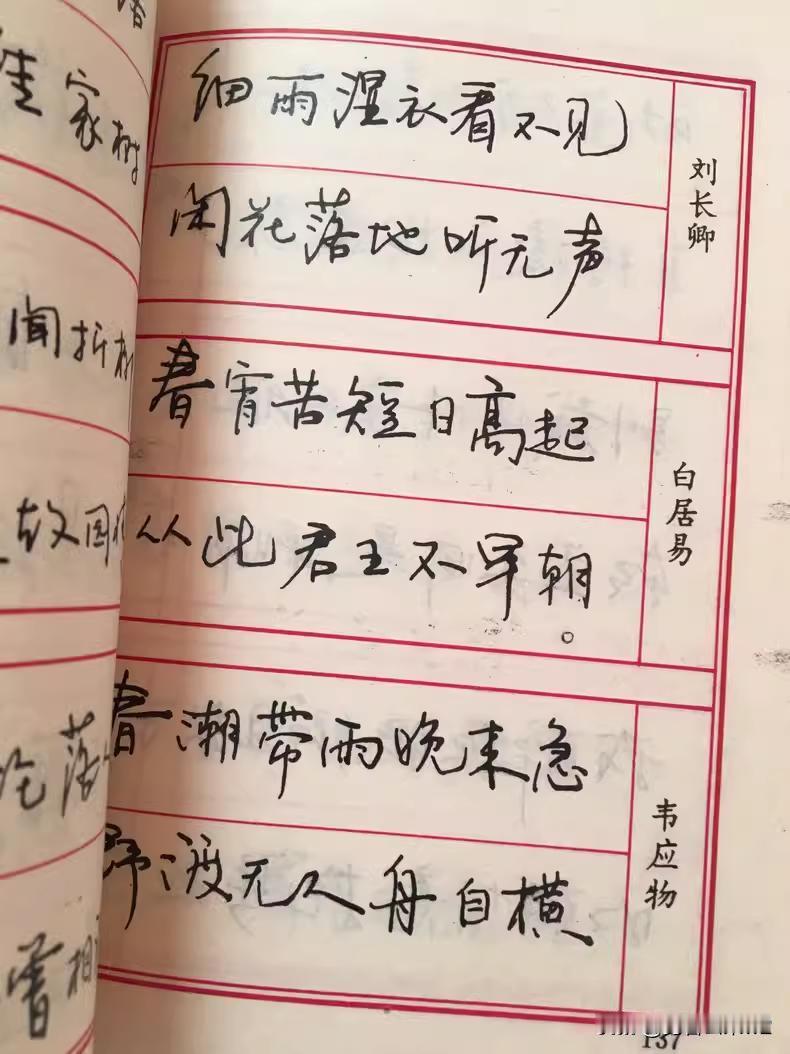 细雨湿衣看不见
闲花落地听无声
刘长卿
春宵苦短日高起
从此君王不早朝。
白居易
春潮带雨晚来急
野渡无人舟自横
韦应物
家树
闻折
故国
落
曾相
137